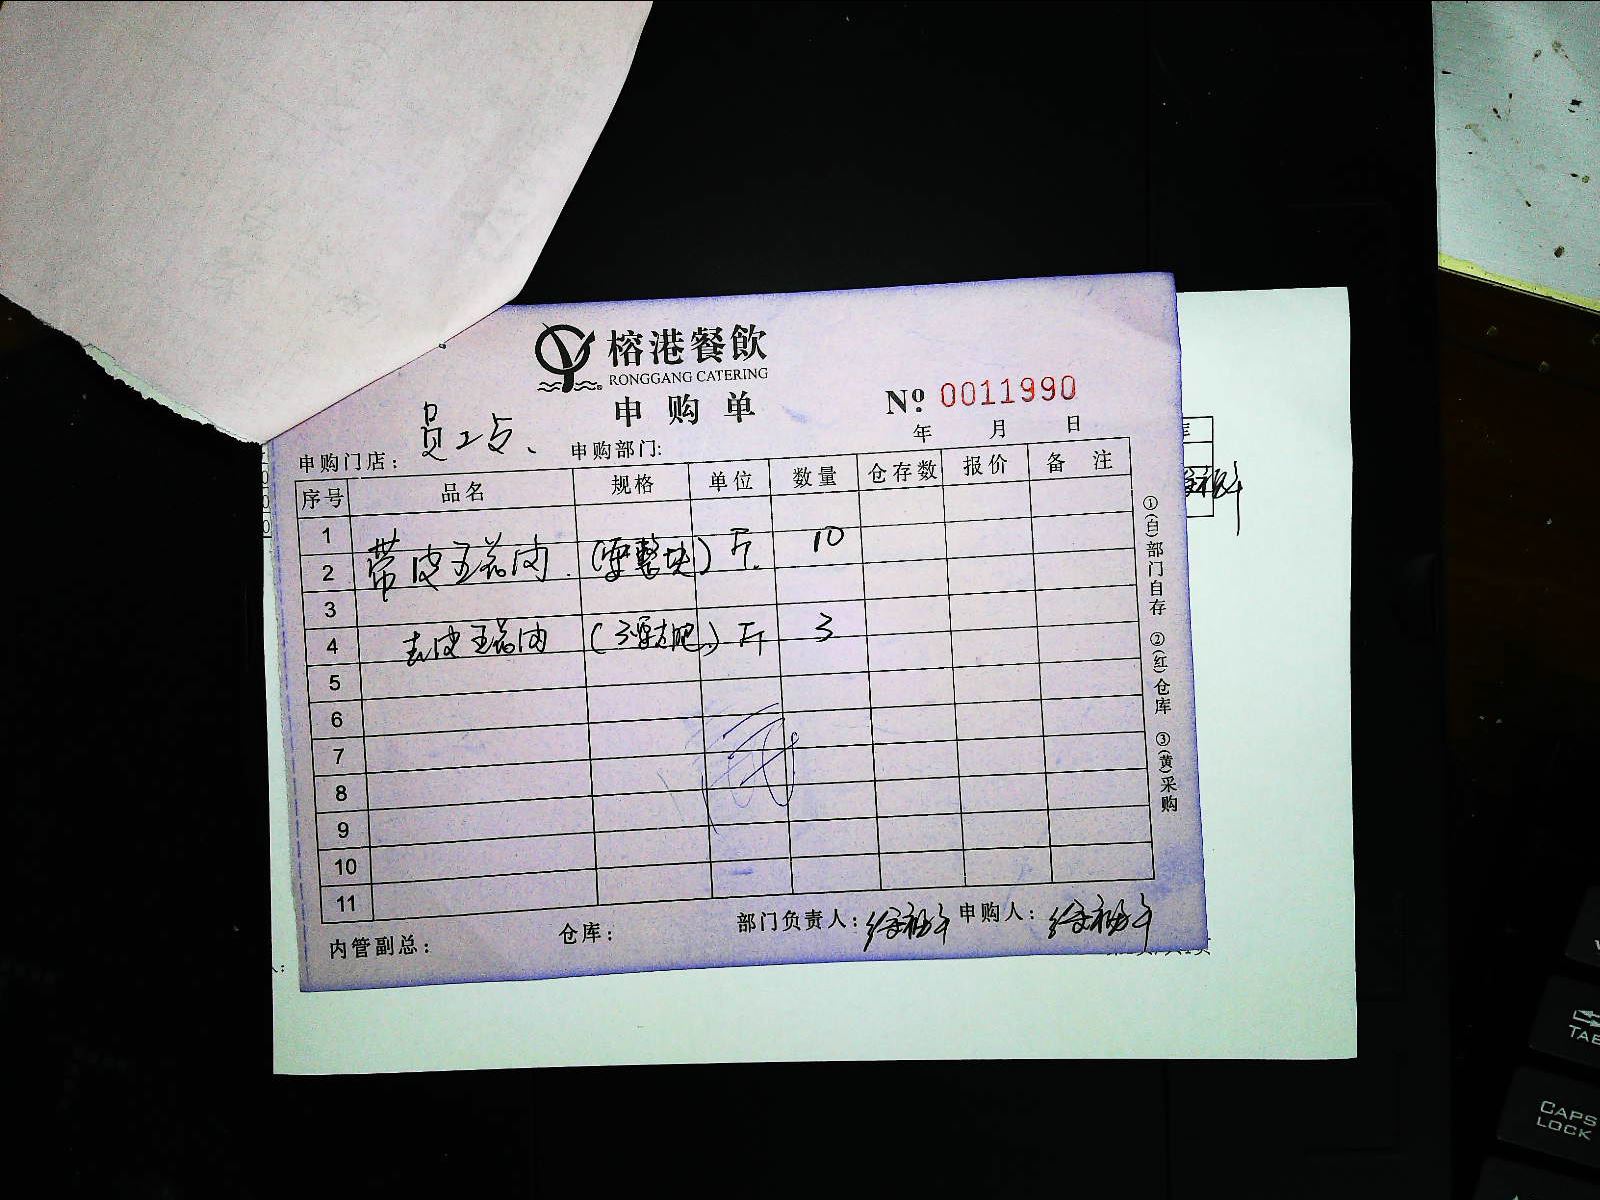 榕港餐飲
RONGGANG CATERING
申购单
Nº 0011990
年 月 日
申购门店： 员工 申购部门:
序号 品名 规格 单位 数量 仓存数 报价 备注
1
2 带皮五花肉 (要整块) 斤 10
3
4 去皮五花肉 斤 3
5
6
7
8
9
10
11
内管副总： 仓库： 部门负责人： 申购人：
①(白)部门自存 ②(红)仓库 ③(黄)采购
TAB
CAPS
LOCK